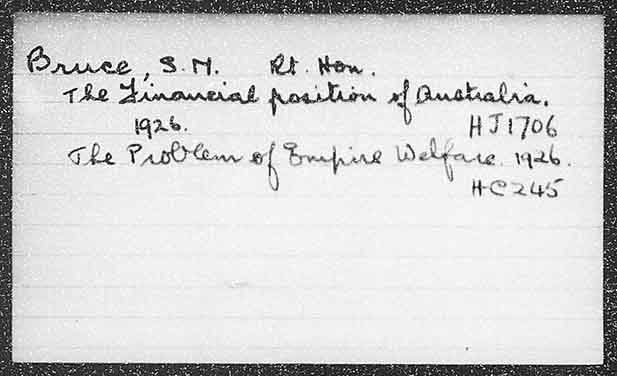 Bruce, S. M. Rt. Hon.
The Financial position of Australia.
1926. HJ1706
The Problem of Empire Welfare. 1926.
HC245